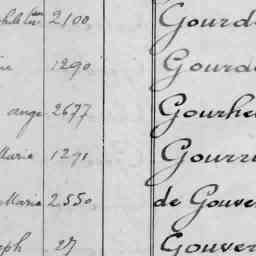 2100 Gourd
1290 Gourd
ange 2677 Gourhe
Maria 1291 Gourr
Maria 2550 de Gouve
ph 27 Gouver